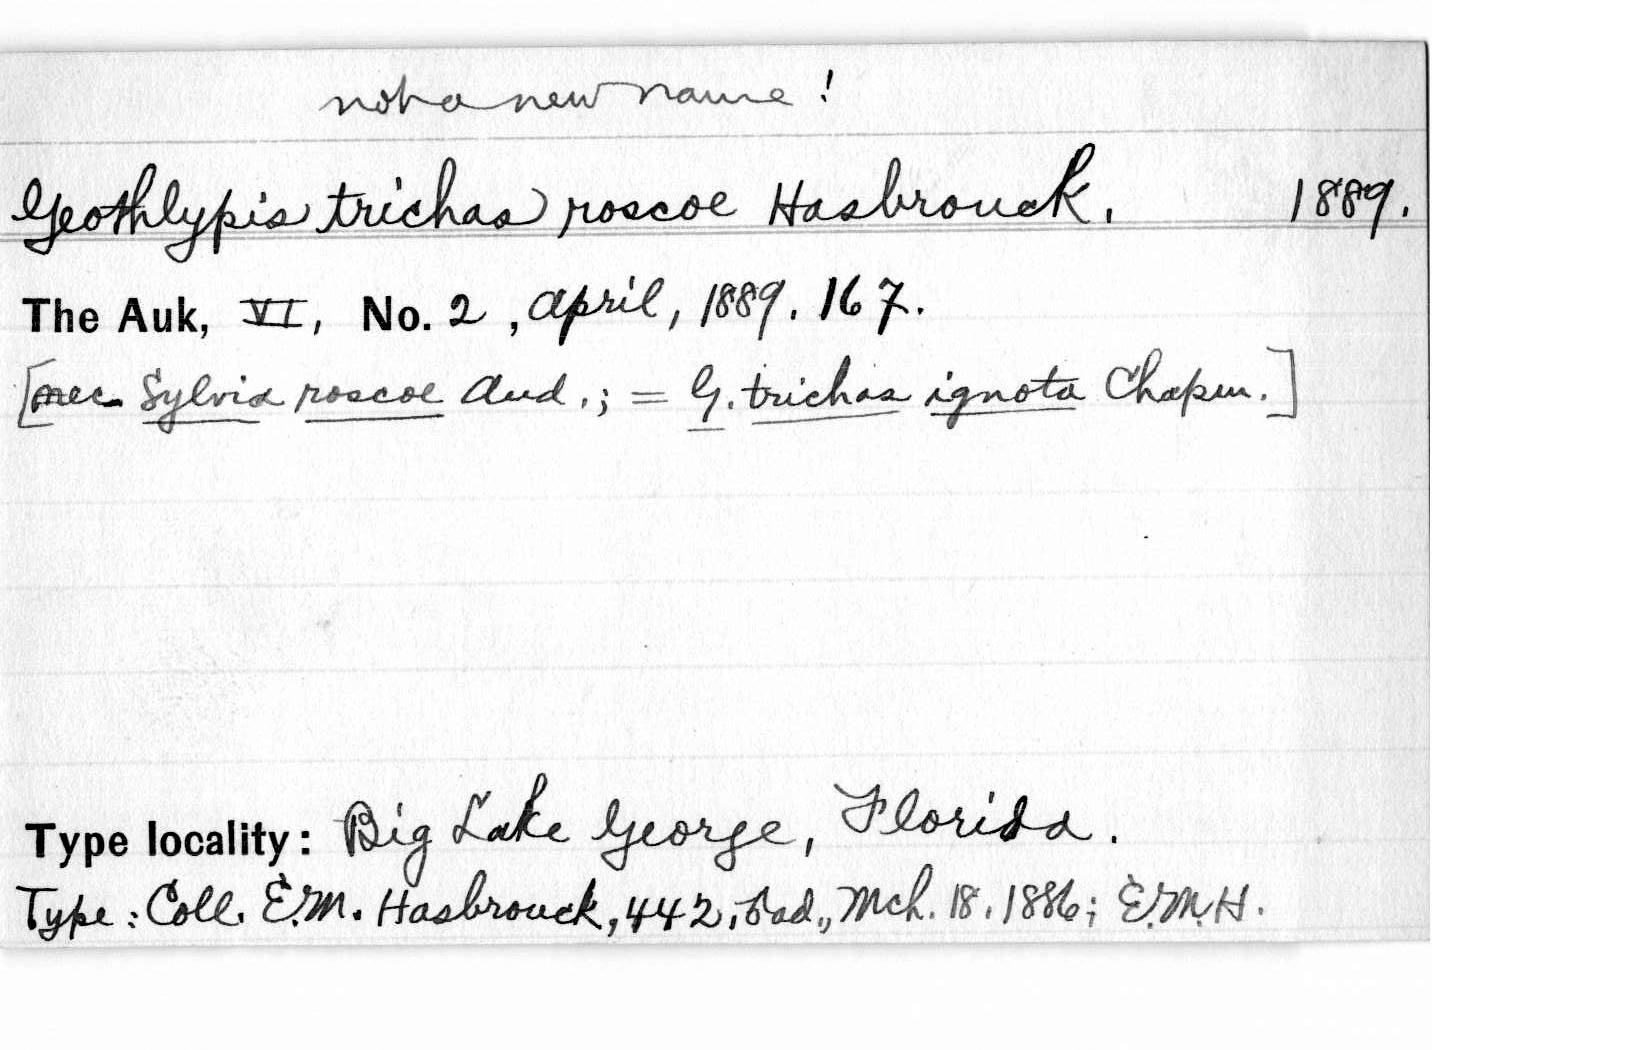 not a new name!
Geothlypis trichas roscoe Hasbrouck. 1889.
The Auk, VI, No. 2, April, 1889. 167.
[nec Sylvia roscoe Aud.; = G. trichas ignota Chapm.]
Type locality: Big Lake George, Florida.
Type: Coll. E.M. Hasbrouck, 442, ♂ad., Mch. 18. 1886; E.M.H.